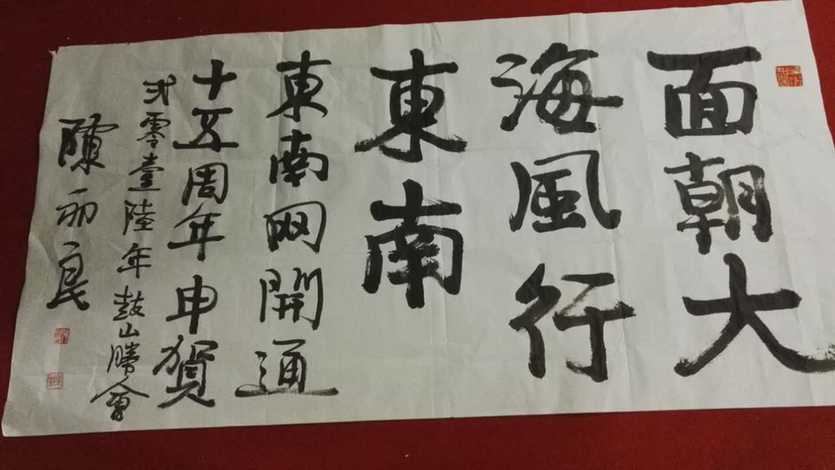 面朝大
海風行
東南
東南网開通
十五周年申賀
弍零壹陸年鼓山勝會
陳初良